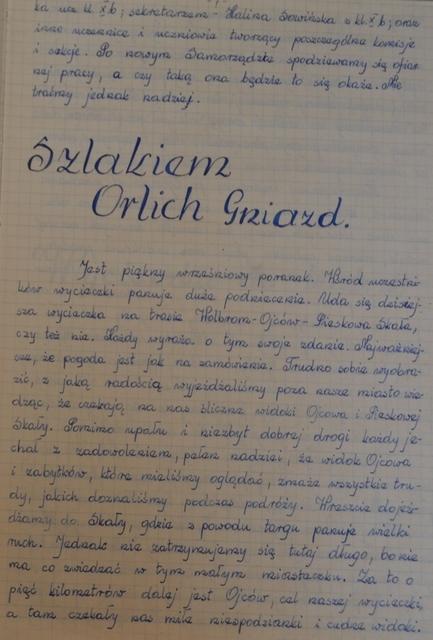 ka ucz. kl. X b; sekretarzem - Halina Sowińska z kl. X b; oraz
inne uczennice i uczniowie tworzący poszczególne komisje
i sekcje. Po nowym Samorządzie spodziewamy się ofiar-
nej pracy, a czy taką ona będzie to się okaże. Nie
traćmy jednak nadziei.
Szlakiem
Orlich Gniazd.
Jest piękny wrześniowy poranek. Wśród uczestni-
ków wycieczki panuje duże podniecenie. Uda się dzisiej-
sza wycieczka na trasie Wolbrom-Ojców-Pieskowa Skała,
czy też nie. Każdy wyraża o tym swoje zdanie. Najważniej-
sze, że pogoda jest jak na zamówienie. Trudno sobie wyobra-
zić, z jaką radością wyjeżdżaliśmy poza nasze miasto wie-
dząc, że czekają na nas śliczne widoki Ojcowa i Pieskowej
Skały. Pomimo upału i niezbyt dobrej drogi każdy je-
chał z zadowoleniem, pełen nadziei, że widok Ojcowa
i zabytków, które mieliśmy oglądać, zmaże wszystkie tru-
dy, jakich doznaliśmy podczas podróży. Wreszcie dojeż-
dżamy do Skały, gdzie z powodu targu panuje wielki
ruch. Jednak nie zatrzymujemy się tutaj długo, bo nie
ma co zwiedzać w tym małym miasteczku. Za to o
pięć kilometrów dalej jest Ojców, cel naszej wycieczki,
a tam czekały nas miłe niespodzianki i cudne widoki.